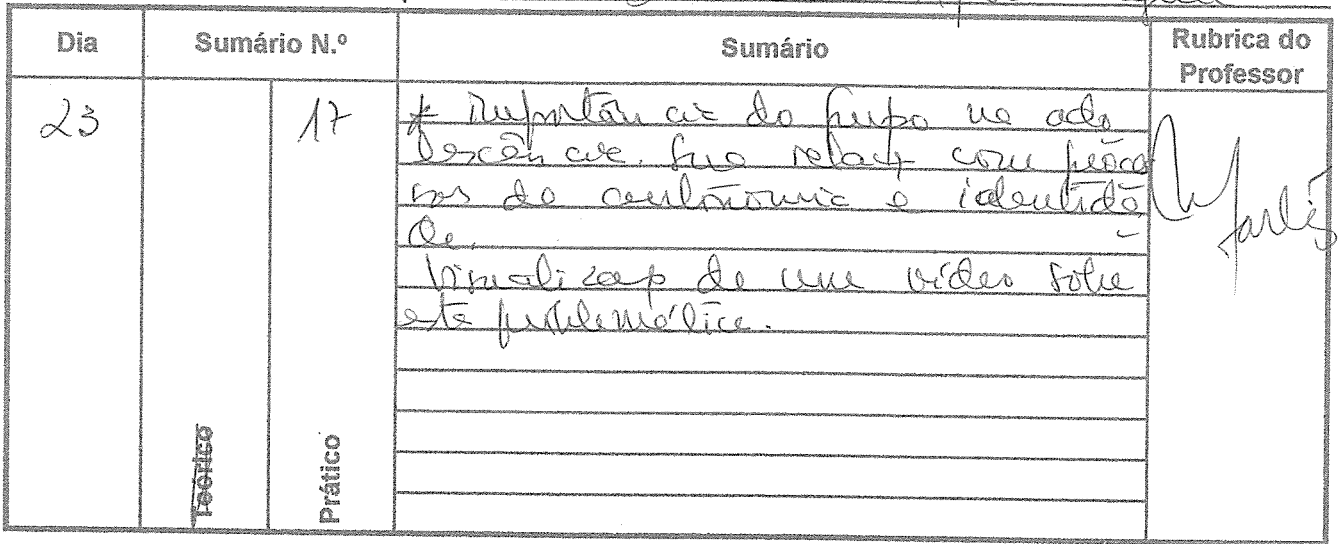 Dia Sumário N.º Sumário Rubrica do Professor
23 17 A importância do grupo na ado
lescência. Sua relação com proces
sos de autonomia e identida
de.
Visualização de um vídeo sobre
esta problemática.
Teórico Prático